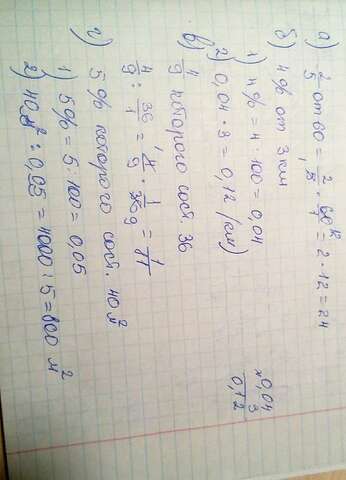 а) 2/5 от 60 = 2/5 · 60/1 = 2 · 12 = 24
б) 4% от 3 км
1) 4% = 4 : 100 = 0,04
2) 0,04 · 3 = 0,12 (км)
×0,04
3
0,12
в) 4/9 которого сост 36
4/9 : 36/1 = 4/9 · 1/36 =
г) 5% которого сост. 40 м²
1) 5% = 5 : 100 = 0,05
2) 40 м² : 0,05 = 4000 : 5 = 800 м²